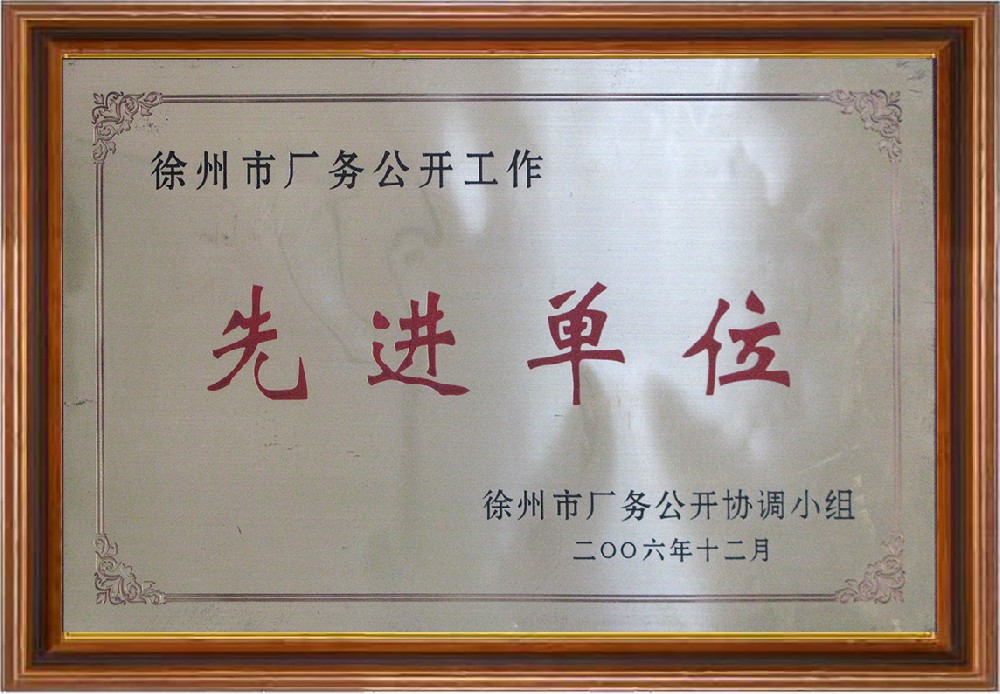 徐州市厂务公开工作
先进单位
徐州市厂务公开协调小组
二〇〇六年十二月